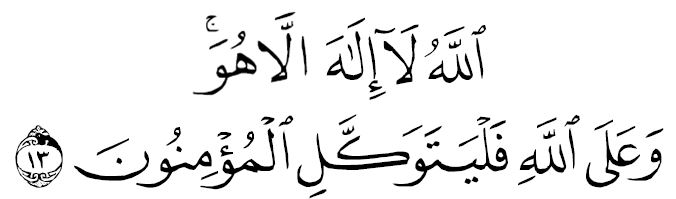 ٱللَّهُ لَآ إِلَٰهَ إِلَّا هُوَۚ
وَعَلَى ٱللَّهِ فَلْيَتَوَكَّلِ ٱلْمُؤْمِنُونَ ١٣